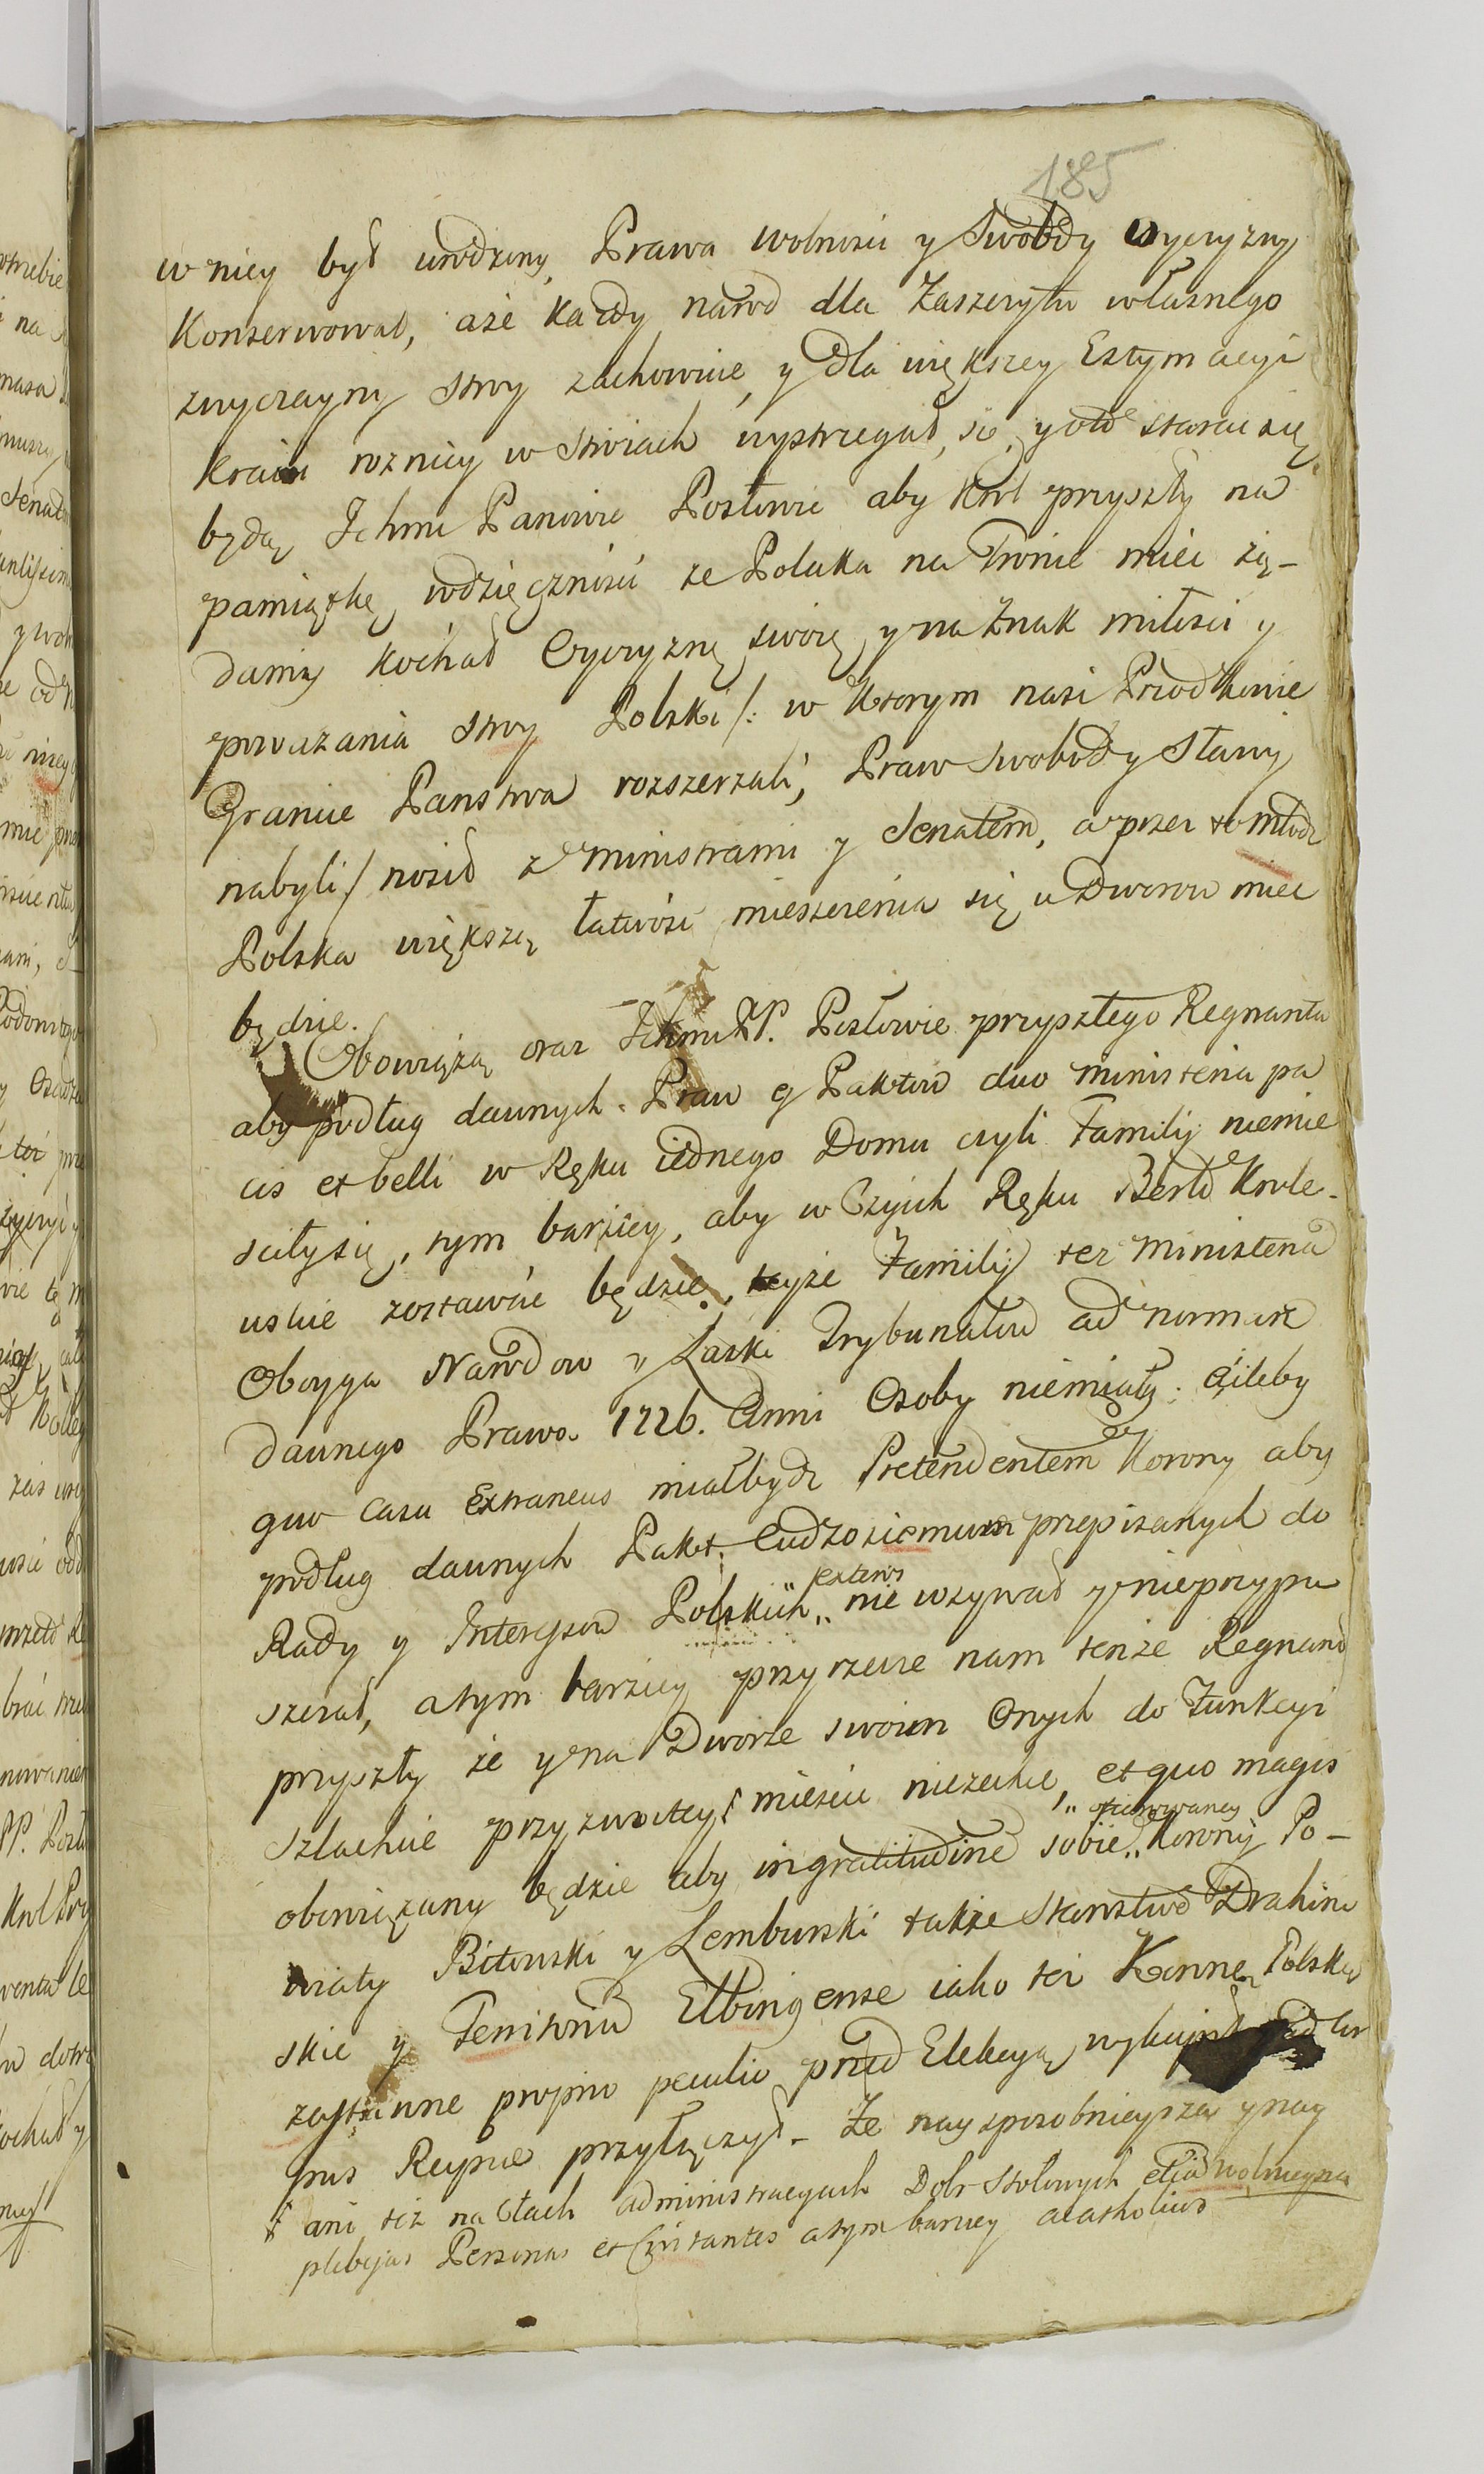 185
w niey był urodzony, Prawa wolnosci y Swobody Oyczyzny
Konserwował, aże każdy narod dla Zaszczytu własnego
zwyczayny stroy zachowuie, y dla większey Estymacyi
Kraiu roznicy w stroiach wystrzegał się, y oto starac się
będą Ichmć Panowie Posłowie aby Krol przyszły na
pamiątkę wdzięcznosci ze Polaka na Tronie miec żą-
damy kochał Oyczyznę swoię, y na Znak miłosci y
poważania stroy Polski /: w ktorym nasi Przodkowie
Granice Panstwa rozszerzali, Praw Swobody Sławy
nabyli / nosił z Ministrami y Senatem, a przez to młodz
Polska większą łatwość mieszczenia się u Dworu miec
będzie.
Obowiążą oraz Ichmć PP. Posłowie przyszłego Regnanta
aby podług dawnych Praw y Paktow duo ministeria pa
cis et belli w Ręku iednego Domu czyli Familij niemie
sciły się, tym barziey, aby w Czyich Ręku Berło Krole-
wskie zostawać będzie, teyże Familij też Ministeria
Oboyga Narodow y Laski Trybunałow ad normam
dawnego Prawa 1726. Anni Osoby niemiały: aieleby
quo casu Extraneus miałbydz Pretendentem Korony aby
podług dawnych Pakt. Cudzoziemcow przepisanych do
exteros
Rady y Interessow Polskich „ nie wzywał y nieprzypu
szczał, atym barziey przyrzecze nam tenże Regnant
przyszły że y na Dworze swoim Onych do Funkcyi
Szlachcie przyzwoitey ⸸ miescic niezechce, et quo magis
„ ofiarowaney
obowiązany będzie aby in gratitudine sobie „ Korony Po-
wiaty Bitowski y Lemburski także Starostwo Drahim
skie y Territoriu Elbingense iako też Konne Polskie
zastawne proprio peculio przed Elekcyą
pus Reypcae przyłączył - Ze naysposobnieysza y nay
⸸ ani też na Cłach administracyach Dobr Stołowych etiã wolnieysza
plebejas Personas et Civitantes atym barziey acatholicos